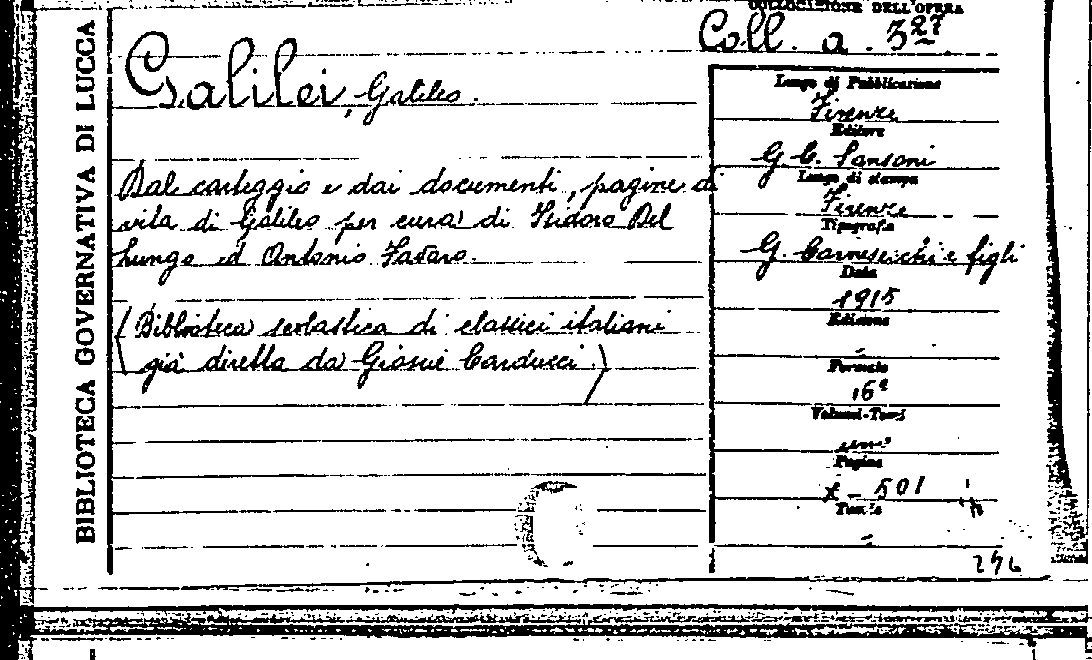 COLLOCAZIONE DELL'OPERA
Coll. a. 327
BIBLIOTECA GOVERNATIVA DI LUCCA
Galilei, Galileo.
Dal carteggio e dai documenti, pagine di
vita di Galileo per cura di Isidoro Del
Lungo ed Antonio Favaro.
(Biblioteca scolastica di classici italiani
già diretta da Giosuè Carducci.)
Luogo di Pubblicazione
Firenze
Editore
G. C. Sansoni
Luogo di stampa
Firenze
Tipografo
G. Carnesecchi e figli
Data
1915
Edizione
-
Formato
16º
Volumi-Tomi
uno
Pagine
X - 501
Tavole
-